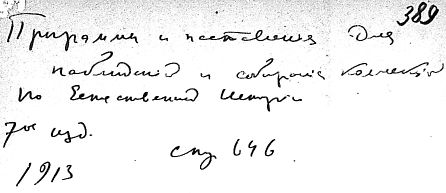 389
Программы и наставления для
наблюдений и собирания коллекций
по Естественной Истории
7ое изд.
стр 646
1913